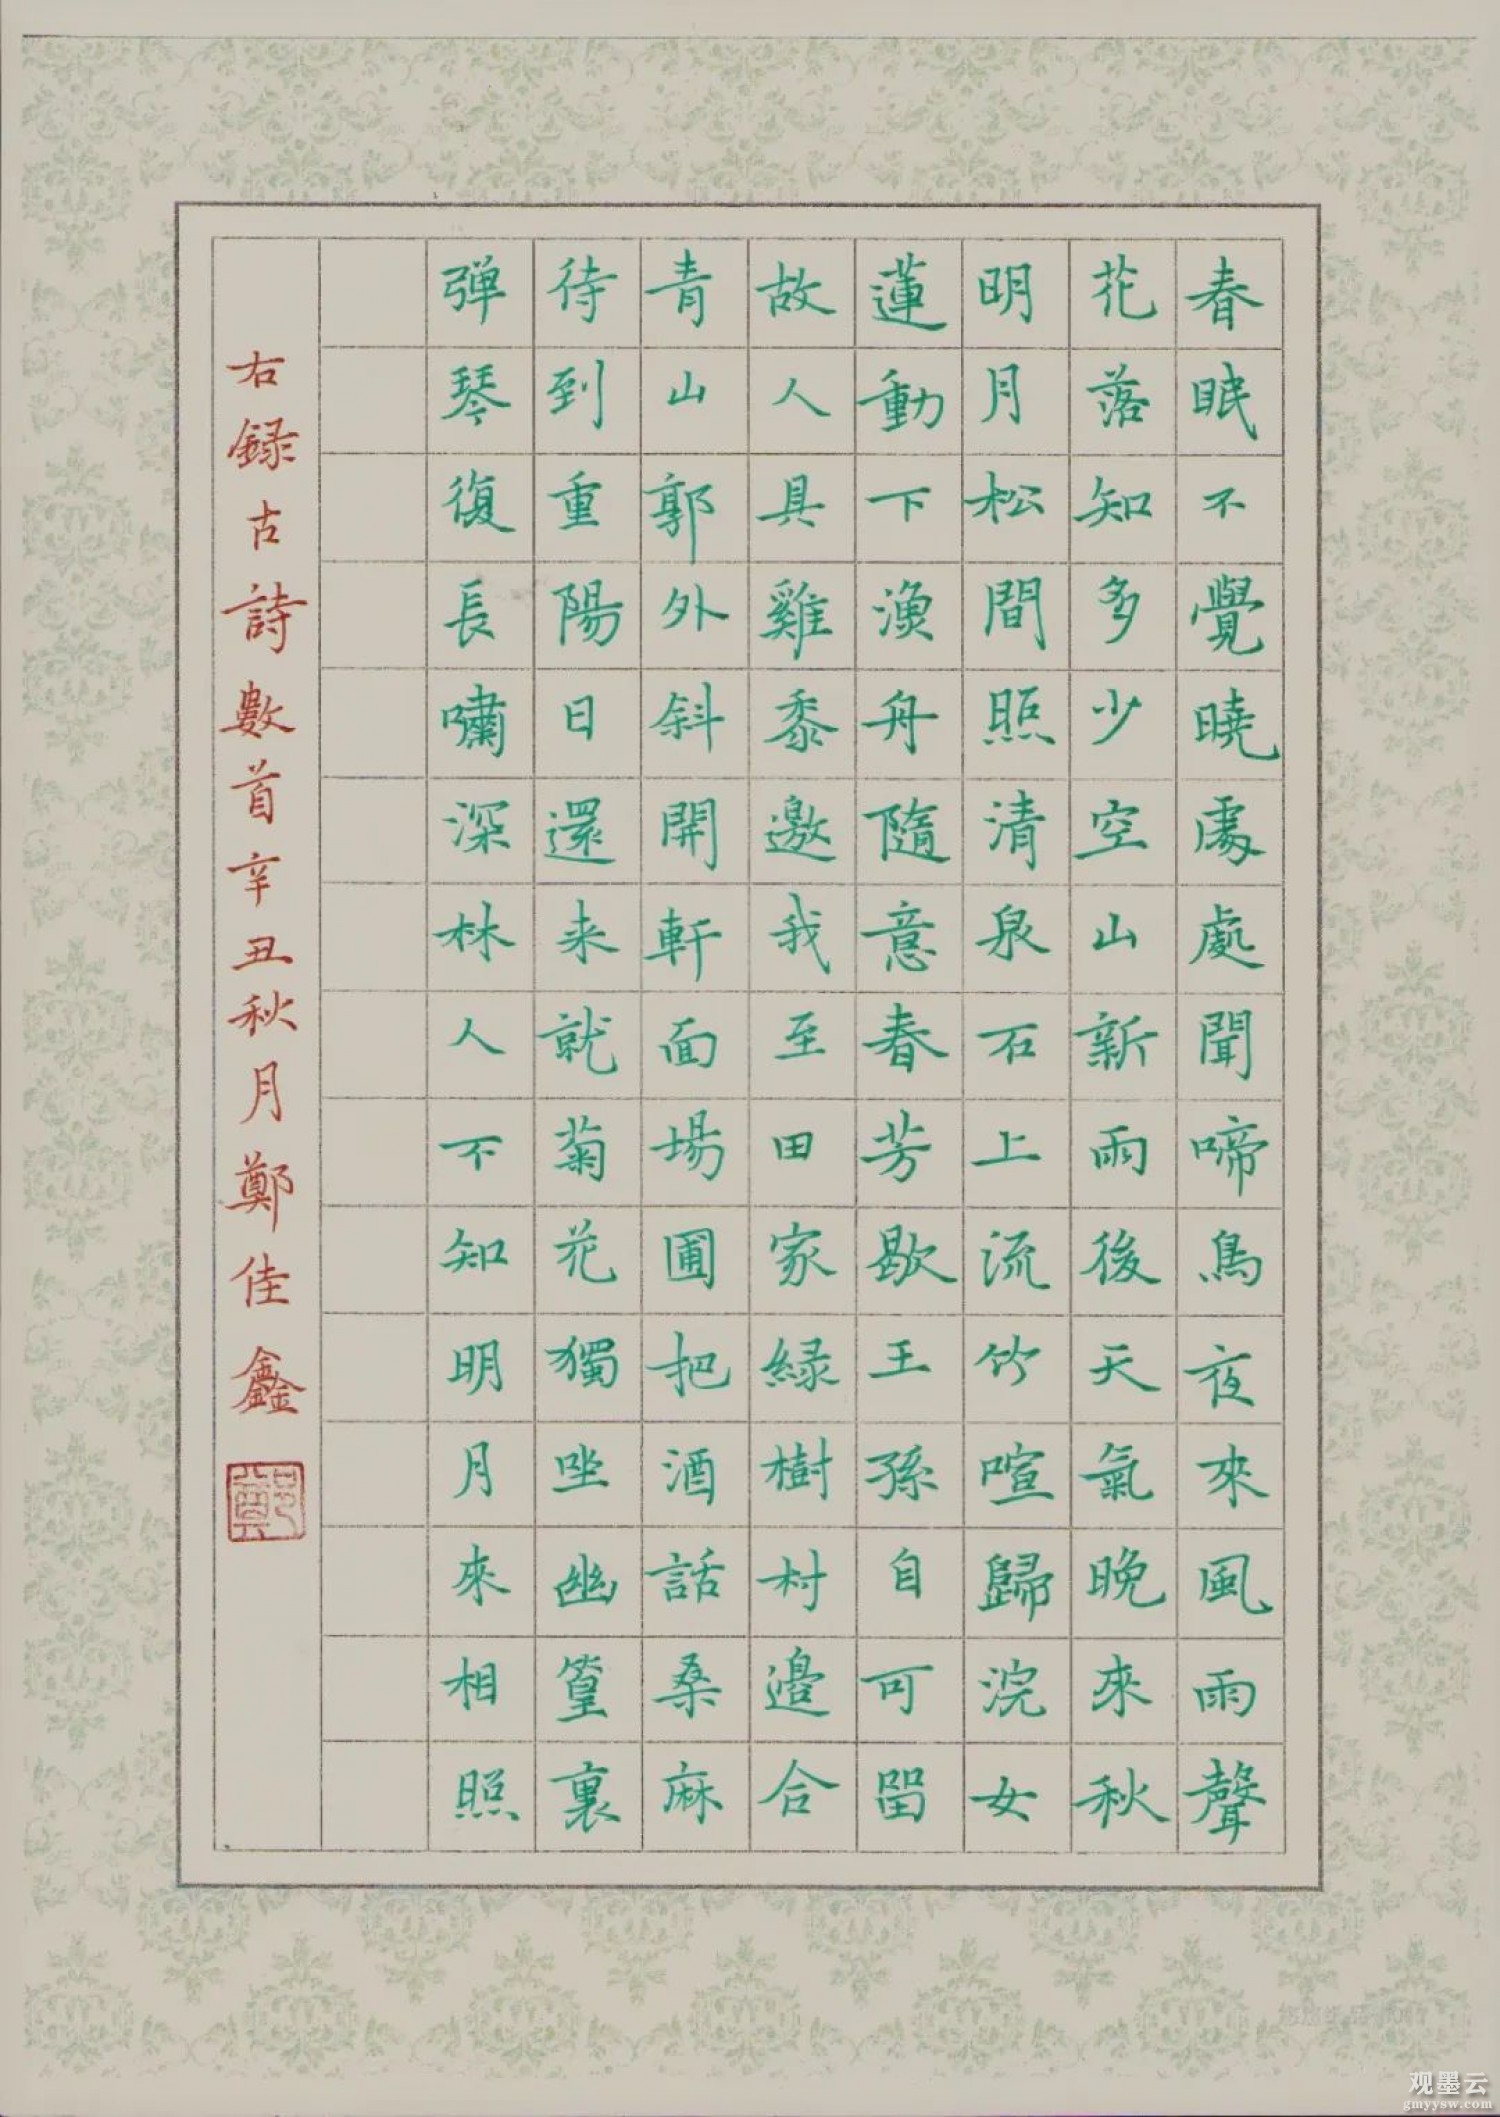 春眠不覺曉處處聞啼鳥夜來風雨聲
花落知多少空山新雨後天氣晚來秋
明月松間照清泉石上流竹喧歸浣女
蓮動下漁舟隨意春芳歇王孫自可留
故人具雞黍邀我至田家綠樹村邊合
青山郭外斜開軒面場圃把酒話桑麻
待到重陽日還来就菊花獨坐幽篁裏
弾琴復長嘯深林人不知明月來相照
右録古詩數首辛丑秋月鄭佳鑫
鄭
观墨云
gmyysw.com